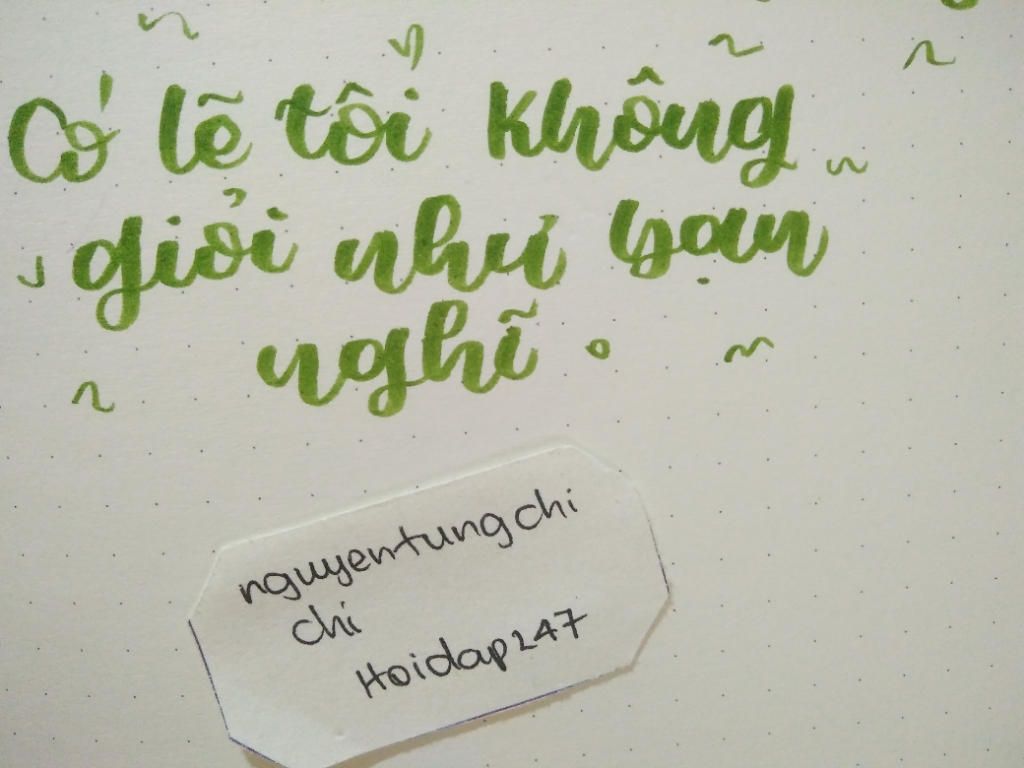 Có lẽ tôi không
giỏi như bạn
nghĩ.
nguyentungchi
chi
Hoidap247